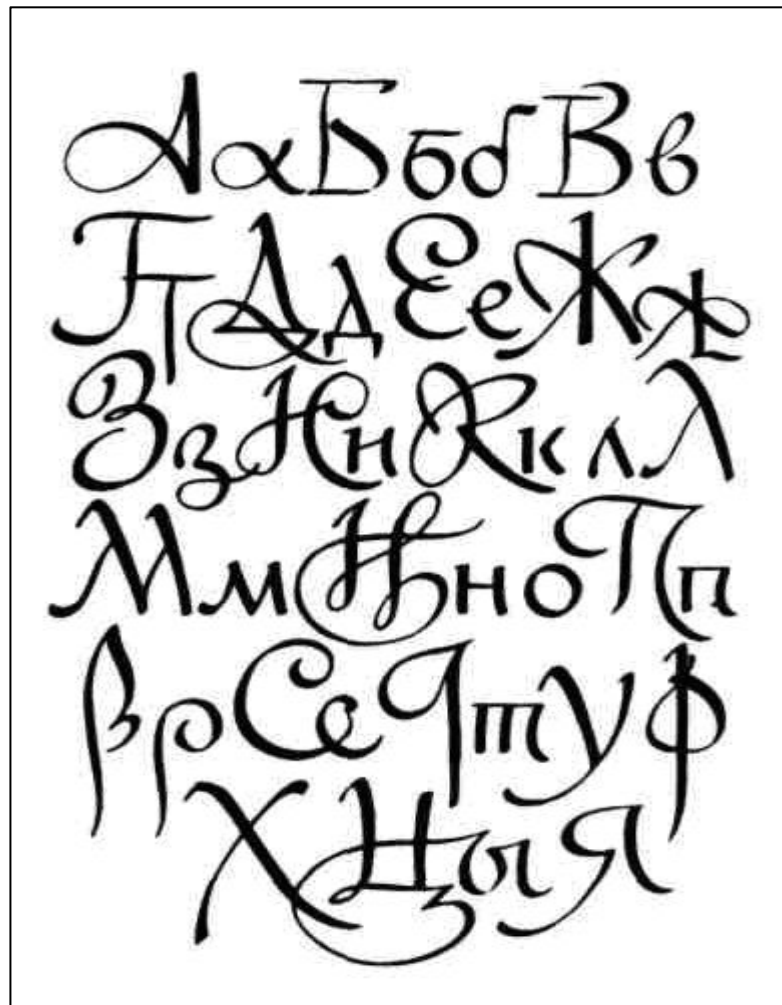 АаБббВв
ГгДдЕеЖж
ЗзНнКклЛ
МмНноПп
РрСсТтуФ
ХЦыЯ